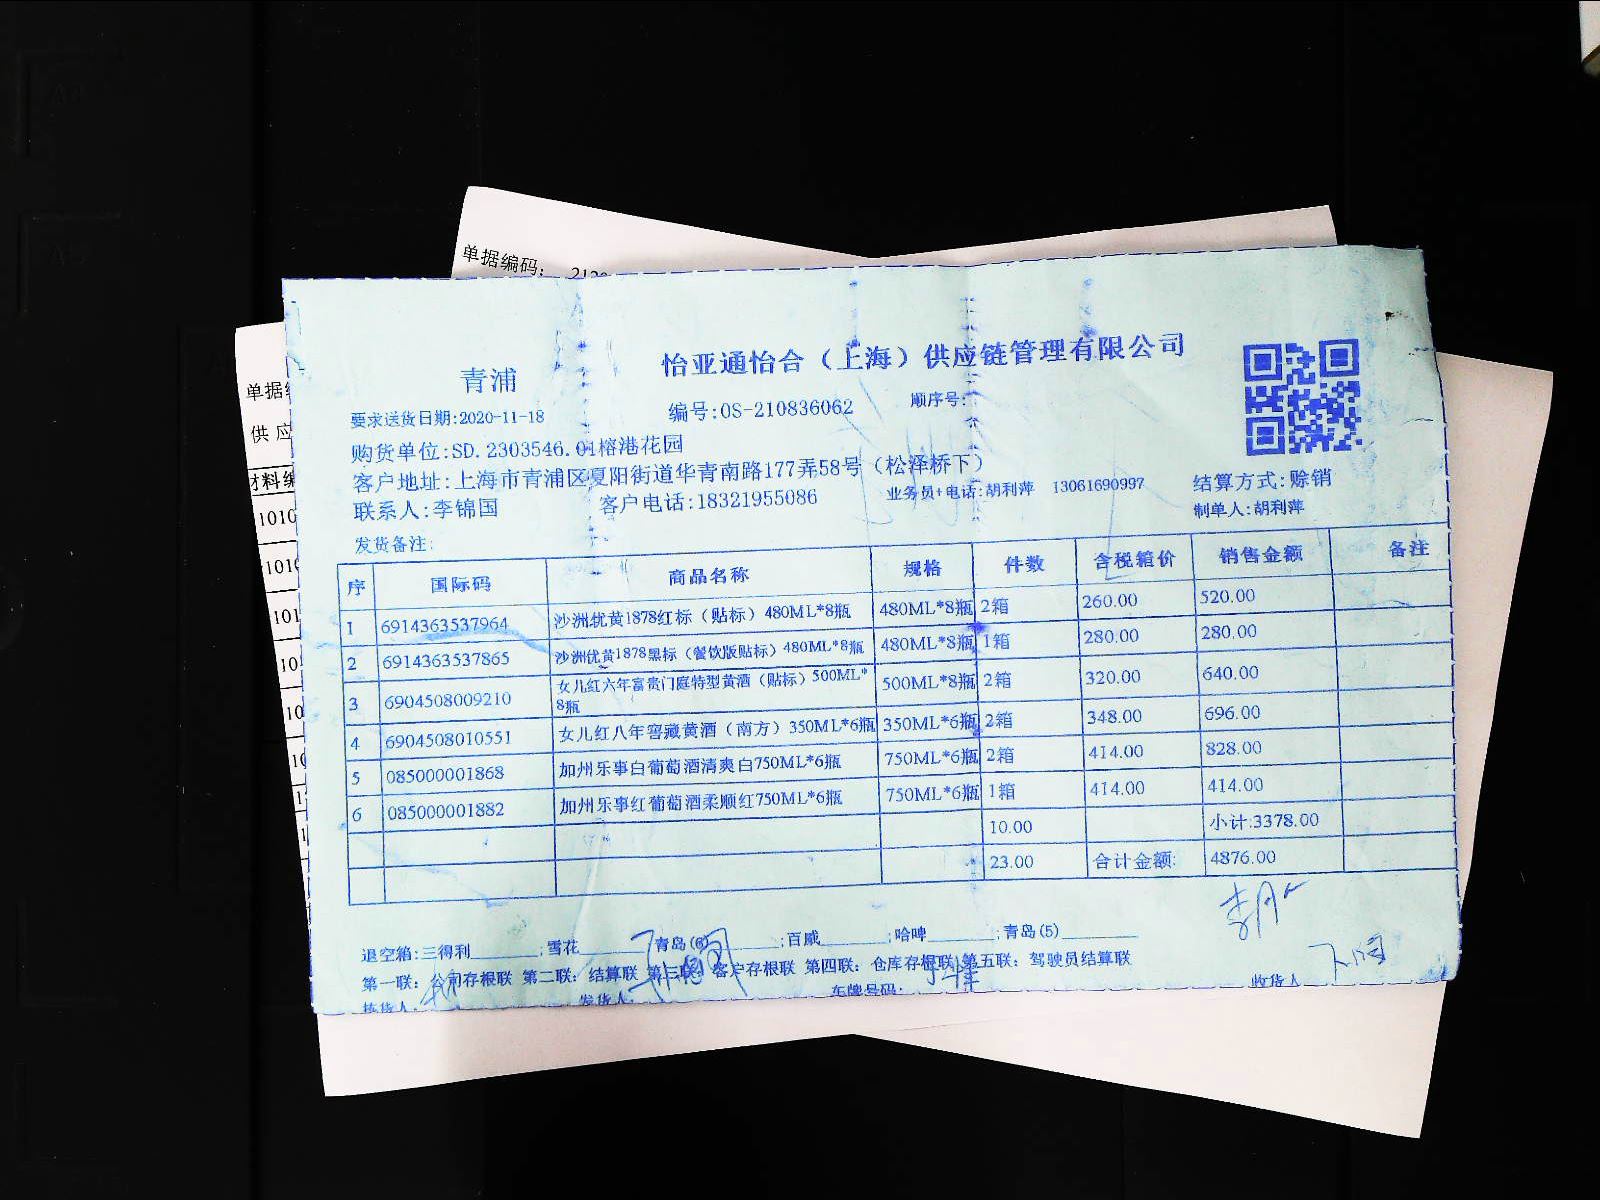 单据编码：
单据
供应
材料编
1010
1010
101
10
10
10
1
1
怡亚通怡合（上海）供应链管理有限公司
青浦
要求送货日期:2020-11-18 编号:OS-210836062 顺序号:
购货单位:SD.2303546.01榕港花园
客户地址:上海市青浦区夏阳街道华青南路177弄58号（松泽桥下）
联系人:李锦国 客户电话:18321955086 业务员+电话:胡利萍 13061690997
结算方式:赊销
制单人:胡利萍
发货备注:
序 国际码 商品名称 规格 件数 含税箱价 销售金额 备注
1 6914363537964 沙洲优黄1878红标（贴标）480ML*8瓶 480ML*8瓶 2箱 260.00 520.00
2 6914363537865 沙洲优黄1878黑标（餐饮版贴标）480ML*8瓶 480ML*8瓶 1箱 280.00 280.00
3 6904508009210 女儿红六年富贵门庭特型黄酒（贴标）500ML*8瓶 500ML*8瓶 2箱 320.00 640.00
4 6904508010551 女儿红八年窖藏黄酒（南方）350ML*6瓶 350ML*6瓶 2箱 348.00 696.00
5 085000001868 加州乐事白葡萄酒清爽白750ML*6瓶 750ML*6瓶 2箱 414.00 828.00
6 085000001882 加州乐事红葡萄酒柔顺红750ML*6瓶 750ML*6瓶 1箱 414.00 414.00
10.00 小计:3378.00
23.00 合计金额: 4876.00
退空箱:三得利______;雪花______青岛(6)______;百威______;哈啤______;青岛(5)______
第一联：公司存根联 第二联：结算联 第三联：客户存根联 第四联：仓库存根联 第五联：驾驶员结算联
拣货人: 发货人: 车牌号码: 收货人